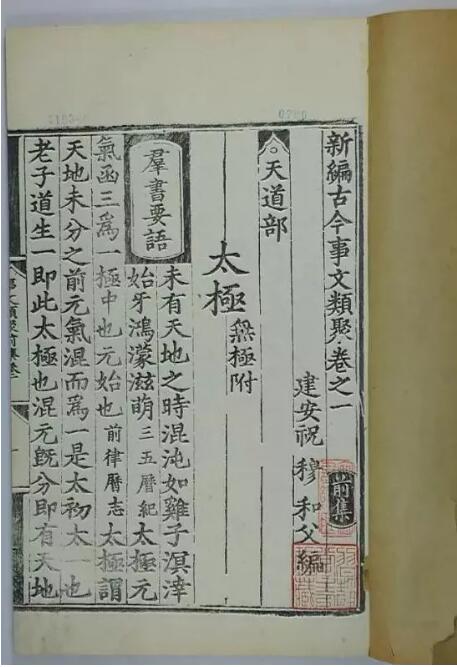 新編古今事文類聚卷之一
前集
建安祝穆和父編
天道部
太極 無極附
羣書要語
未有天地之時混沌如雞子溟涬
始牙鴻蒙滋萌三五曆紀太極元
氣函三爲一極中也元始也前律曆志太極謂
天地未分之前元氣混而爲一是太初太一也
老子道生一即此太極也混元既分即有天地